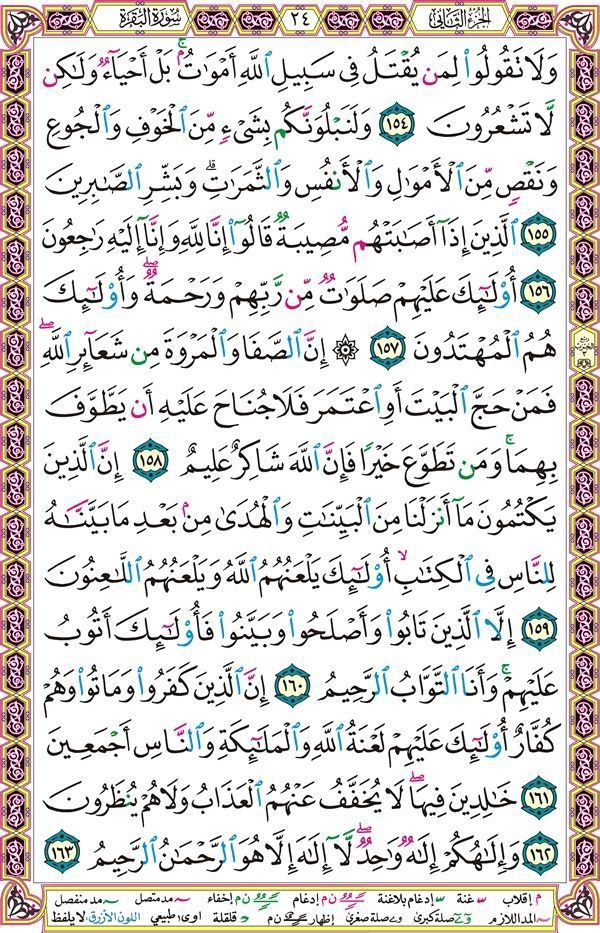 الجزء الثاني ٢٤ سورة البقرة
وَلَا تَقُولُوا۟ لِمَن يُقْتَلُ فِى سَبِيلِ ٱللَّهِ أَمْوَٰتٌۢ ۚ بَلْ أَحْيَآءٌ وَلَـٰكِن
لَّا تَشْعُرُونَ ١٥٤ وَلَنَبْلُوَنَّكُم بِشَىْءٍ مِّنَ ٱلْخَوْفِ وَٱلْجُوعِ
وَنَقْصٍ مِّنَ ٱلْأَمْوَٰلِ وَٱلْأَنفُسِ وَٱلثَّمَرَٰتِ ۗ وَبَشِّرِ ٱلصَّـٰبِرِينَ
١٥٥ ٱلَّذِينَ إِذَآ أَصَـٰبَتْهُم مُّصِيبَةٌ قَالُوٓا۟ إِنَّا لِلَّهِ وَإِنَّآ إِلَيْهِ رَٰجِعُونَ
١٥٦ أُو۟لَـٰٓئِكَ عَلَيْهِمْ صَلَوَٰتٌ مِّن رَّبِّهِمْ وَرَحْمَةٌ ۖ وَأُو۟لَـٰٓئِكَ
هُمُ ٱلْمُهْتَدُونَ ١٥٧ ۞ إِنَّ ٱلصَّفَا وَٱلْمَرْوَةَ مِن شَعَآئِرِ ٱللَّهِ ۖ
فَمَنْ حَجَّ ٱلْبَيْتَ أَوِ ٱعْتَمَرَ فَلَا جُنَاحَ عَلَيْهِ أَن يَطَّوَّفَ
بِهِمَا ۚ وَمَن تَطَوَّعَ خَيْرًا فَإِنَّ ٱللَّهَ شَاكِرٌ عَلِيمٌ ١٥٨ إِنَّ ٱلَّذِينَ
يَكْتُمُونَ مَآ أَنزَلْنَا مِنَ ٱلْبَيِّنَـٰتِ وَٱلْهُدَىٰ مِنۢ بَعْدِ مَا بَيَّنَّـٰهُ
لِلنَّاسِ فِى ٱلْكِتَـٰبِ ۙ أُو۟لَـٰٓئِكَ يَلْعَنُهُمُ ٱللَّهُ وَيَلْعَنُهُمُ ٱللَّـٰعِنُونَ
١٥٩ إِلَّا ٱلَّذِينَ تَابُوا۟ وَأَصْلَحُوا۟ وَبَيَّنُوا۟ فَأُو۟لَـٰٓئِكَ أَتُوبُ
عَلَيْهِمْ ۚ وَأَنَا ٱلتَّوَّابُ ٱلرَّحِيمُ ١٦٠ إِنَّ ٱلَّذِينَ كَفَرُوا۟ وَمَاتُوا۟ وَهُمْ
كُفَّارٌ أُو۟لَـٰٓئِكَ عَلَيْهِمْ لَعْنَةُ ٱللَّهِ وَٱلْمَلَـٰٓئِكَةِ وَٱلنَّاسِ أَجْمَعِينَ
١٦١ خَـٰلِدِينَ فِيهَا ۖ لَا يُخَفَّفُ عَنْهُمُ ٱلْعَذَابُ وَلَا هُمْ يُنظَرُونَ
١٦٢ وَإِلَـٰهُكُمْ إِلَـٰهٌ وَٰحِدٌ ۖ لَّآ إِلَـٰهَ إِلَّا هُوَ ٱلرَّحْمَـٰنُ ٱلرَّحِيمُ ١٦٣
م إقلاب غنة إدغام بلاغنة ن م إدغام ن م إخفاء مد متصل مد منفصل
المد اللازم صلة كبرى صلة صغرى إظهار ن م قلقلة اوى طبيعي اللون الأزرق: لا يلفظ